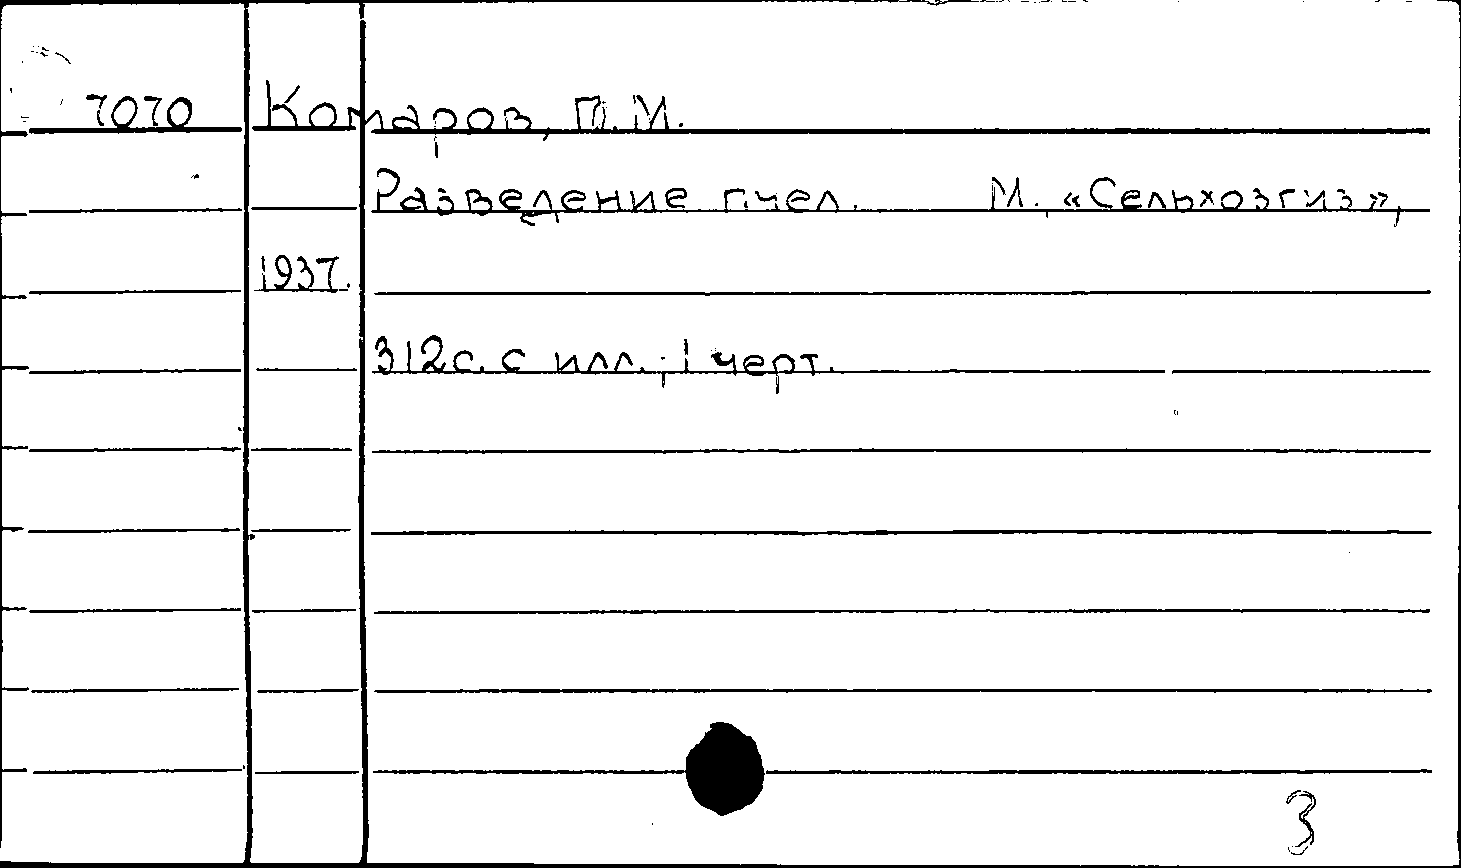 7070 Комаров, П.М.
Разведение пчел. М., «Сельхозгиз»,
1937.
312с. с илл.; 1 черт.
3